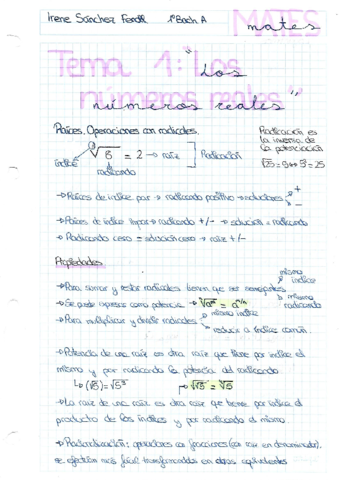 Irene Sánchez 1º Bach A
MATES
mates
Tema 1: "Los
números reales"
Raíces. Operaciones con radicales.
Radicación es
la inversa de
la potenciación
índice
radicando
= 2 → raíz
Radicación
→ Raíces de índice par → radicando positivo → soluciones + -
→ Raíces de índice impar → radicando +/- → solución = radicando
→ Radicando cero = solución cero → raíz +/-
Propiedades
→ Para sumar y restar radicales tienen que ser semejantes
mismo índice
mismo radicando
→ Se puede expresar como potencia
→ Para multiplicar y dividir radicales
mismo índice
reducir a índice común.
→ Potencia de una raíz es otra raíz que tiene por índice el
mismo y por radicando la potencia del radicando
→ La raíz de una raíz es otra raíz que tiene por índice el
producto de los índices y por radicando el mismo.
→ Racionalización: operaciones con fracciones (con raíz en denominador).
se efectúan más fácil transformándolas en otras equivalentes